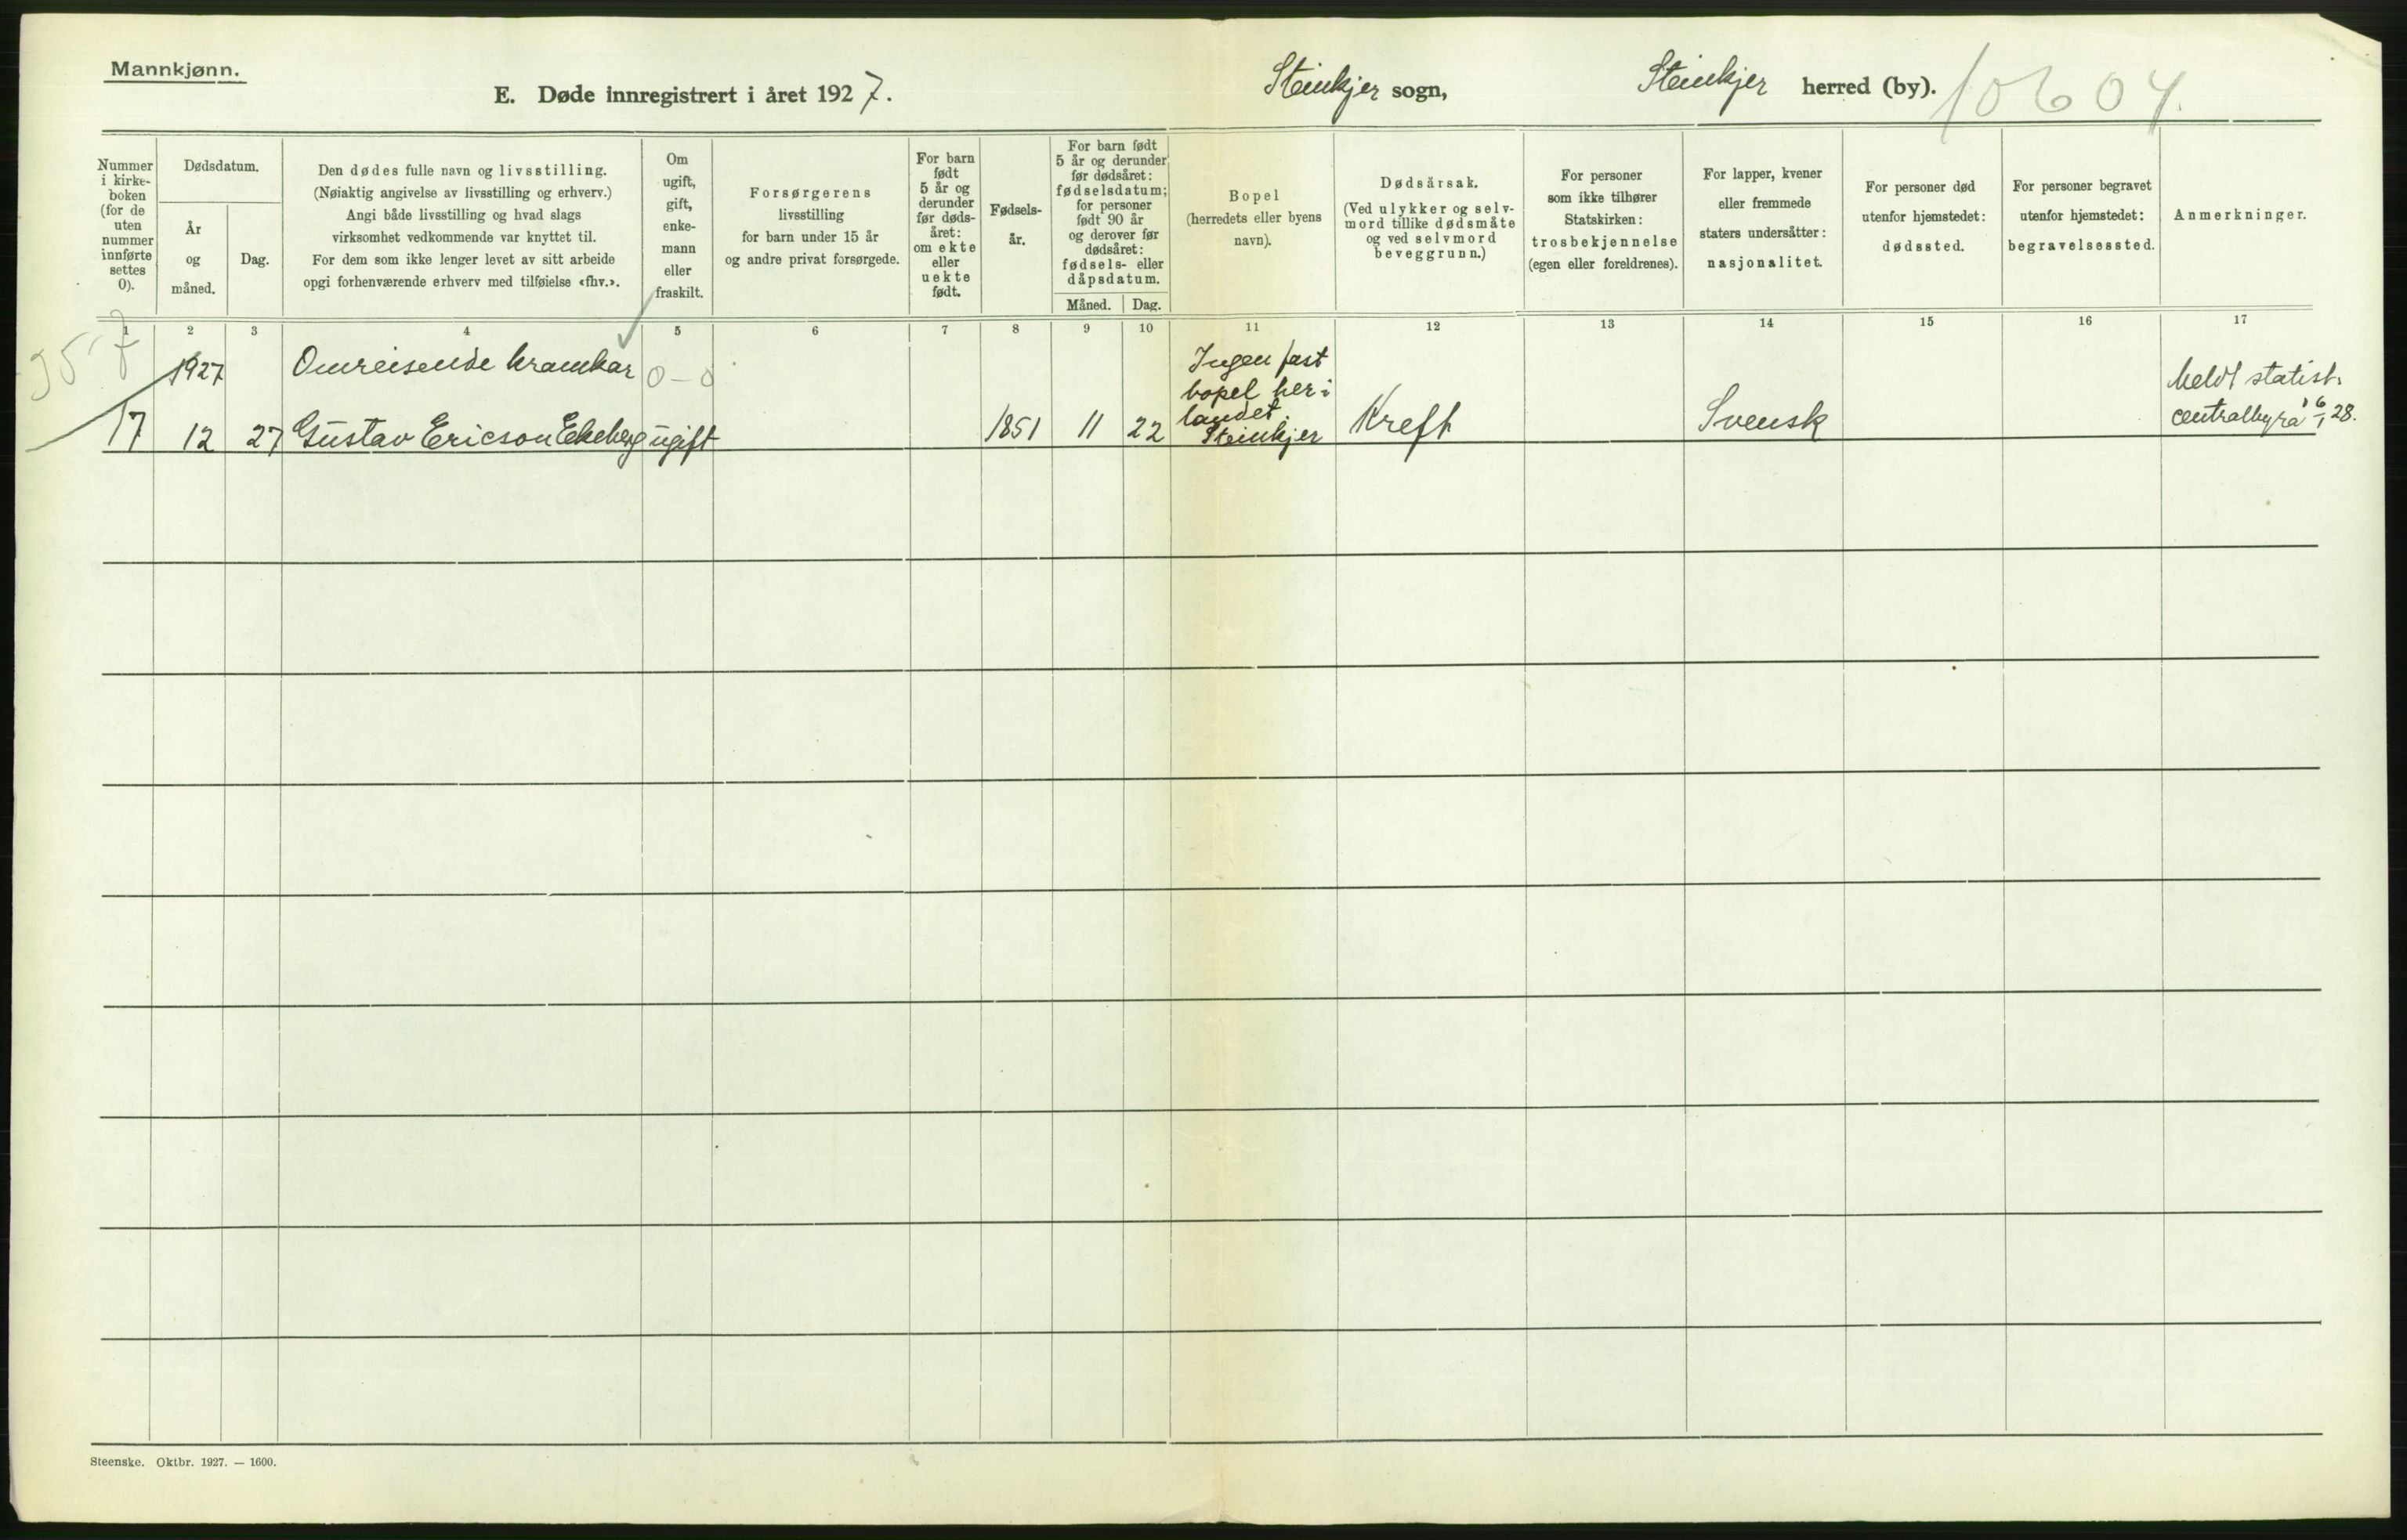 Mannkjønn.
E. Døde innregistrert i året 1927.
Steinkjer sogn,
Steinkjer herred (by).
10604.
Nummer
i kirke-
boken
(for de
uten
nummer
innførte
settes
0).
Dødsdatum.
År
og
måned.
Dag.
Den dødes fulle navn og livsstilling.
(Nøiaktig angivelse av livsstilling og erhverv.)
Angi både livsstilling og hvad slags
virksomhet vedkommende var knyttet til.
For dem som ikke lenger levet av sitt arbeide
opgi forhenværende erhverv med tilføielse «fhv.».
Om
ugift,
gift,
enke-
mann
eller
fraskilt.
Forsørgerens
livsstilling
for barn under 15 år
og andre privat forsørgede.
For barn
født
5 år og
derunder
før døds-
året:
om ekte
eller
uekte
født.
Fødsels-
år.
For barn født
5 år og derunder
før dødsåret:
fødselsdatum;
for personer
født 90 år
og derover før
dødsåret:
fødsels- eller
dåpsdatum.
Måned. Dag.
Bopel
(herredets eller byens
navn).
Dødsårsak.
(Ved ulykker og selv-
mord tillike dødsmåte
og ved selvmord
beveggrunn.)
For personer
som ikke tilhører
Statskirken:
trosbekjennelse
(egen eller foreldrenes).
For lapper, kvener
eller fremmede
staters undersåtter:
nasjonalitet.
For personer død
utenfor hjemstedet:
dødssted.
For personer begravet
utenfor hjemstedet:
begravelsessted.
Anmerkninger.
1 2 3 4 5 6 7 8 9 10 11 12 13 14 15 16 17
1927 Omreisende kramkar 0-0
Ingen fast
bopel her i
landet.
Meldt statist.
centralbyrå 6/1 28.
17 12 27 Gustav Ericson Ekeberg ugift 1851 11 22 Steinkjer Kreft Svensk
Steenske. Oktbr. 1927. — 1600.